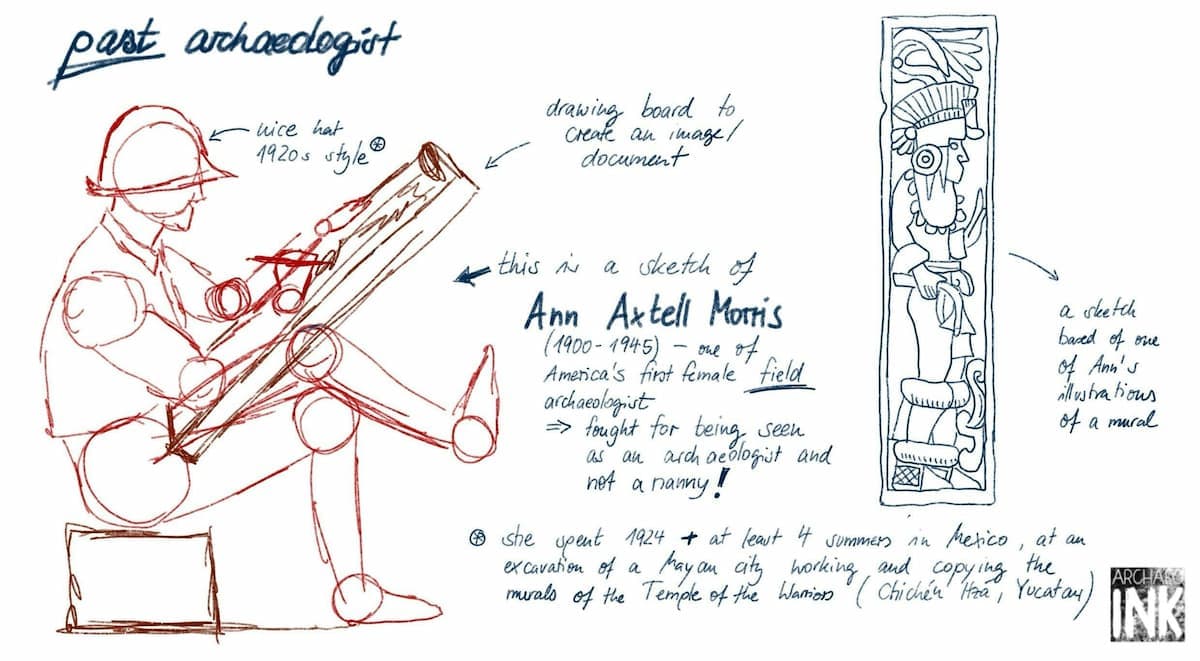 past archaeologist
nice hat
1920s style ⊛
drawing board to
create an image/
document
this is a sketch of
Ann Axtell Morris
(1900-1945) – one of
America's first female field
archaeologist
⇒ fought for being seen
as an archaeologist and
not a nanny!
a sketch
based of one
of Ann's
illustrations
of a mural
⊛ she spent 1924 + at least 4 summers in Mexico, at an
excavation of a Mayan city working and copying the
murals of the Temple of the Warriors (Chichén Itzá, Yucatan)
ARCHAEO
INK